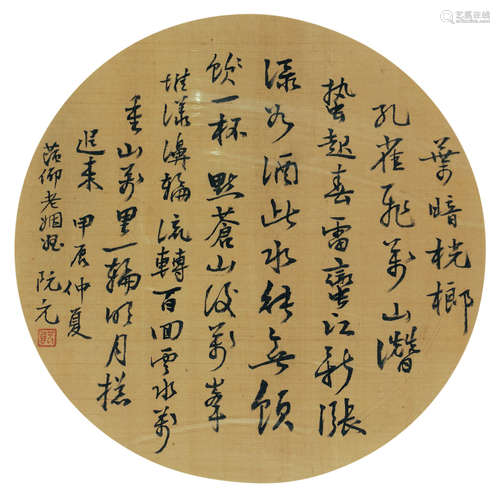 葉暗桄榔
孔雀飛萬山潛
蟄起春雷蠻江新漲
渌如酒此水能無領
飲一杯點蒼山後萬峯
堆漾濞輪流轉百回雲水萬
重山萬里一輪明月搃
追来 甲辰仲夏
仰老姻 阮元